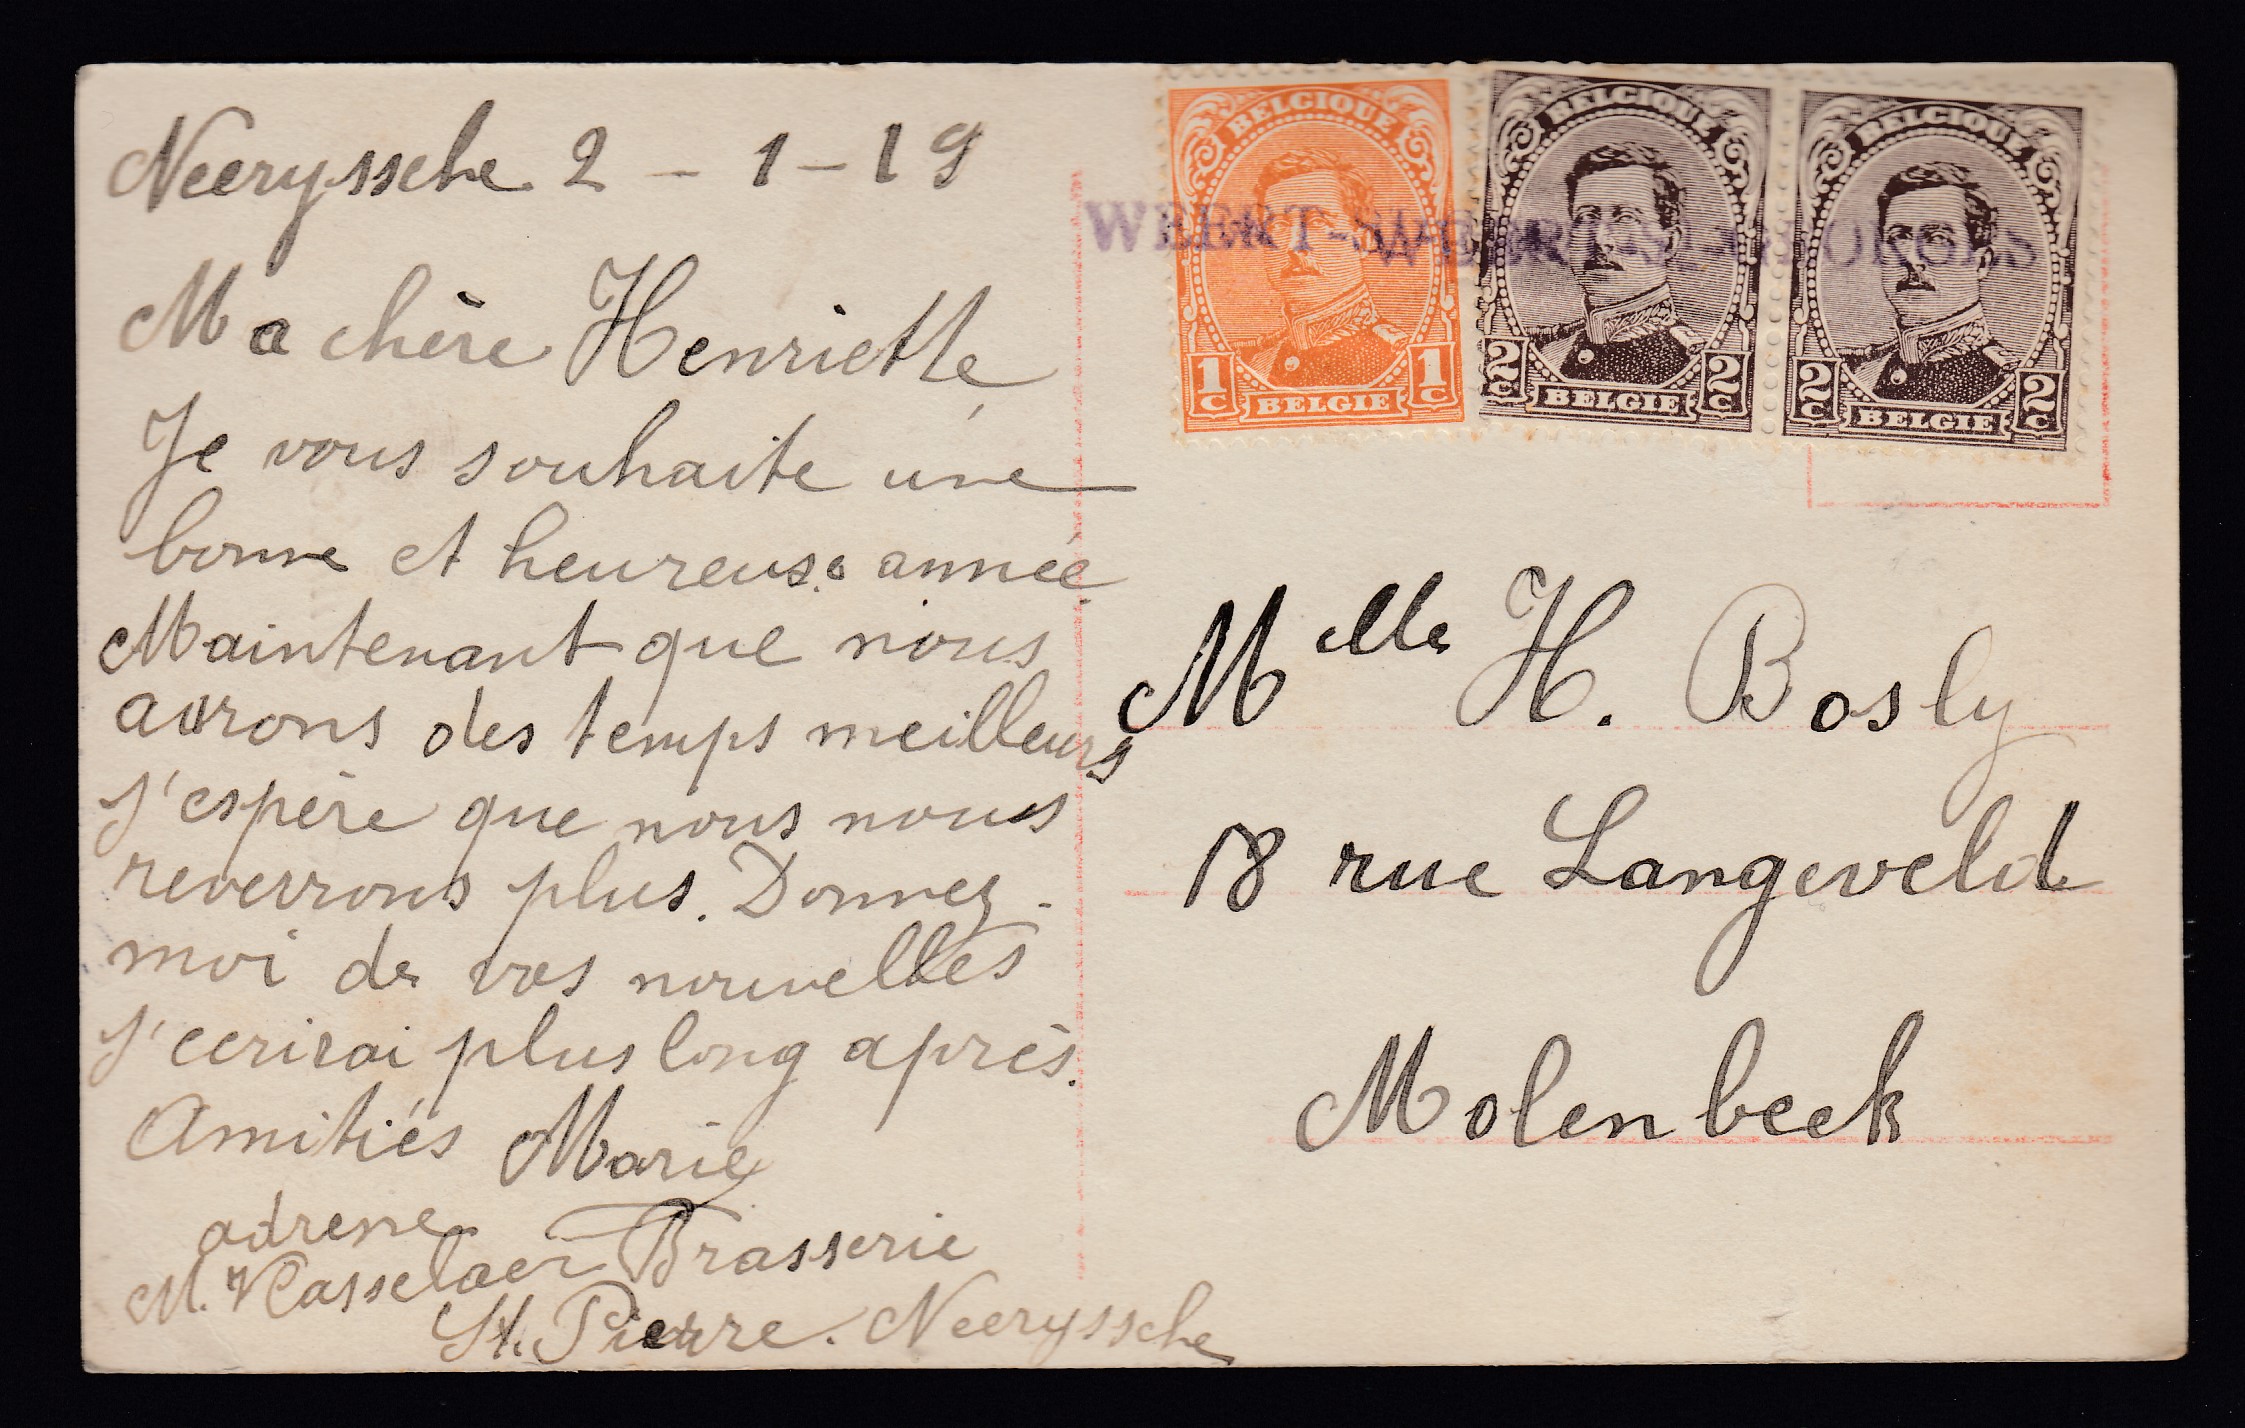 Neeryssche 2 - 1 - 19
Ma chère Henriette
Je vous souhaite une
bonne et heureuse année
Maintenant que nous
aurons des temps meilleurs
j'espère que nous nous
reverrons plus. Donnez-
moi de vos nouvelles
J'ecrirai plus long après.
Amitiés Marie
adresse
M. VCasselaer Brasserie
St. Pierre. Neeryssche
BELGIQUE
1c BELGIE 1c
BELGIQUE
2c BELGIE 2c
BELGIQUE
2c BELGIE 2c
WEERT-S
WEERT-S-GEORGES
Melle H. Bosly
18 rue Langeveld
Molenbeek